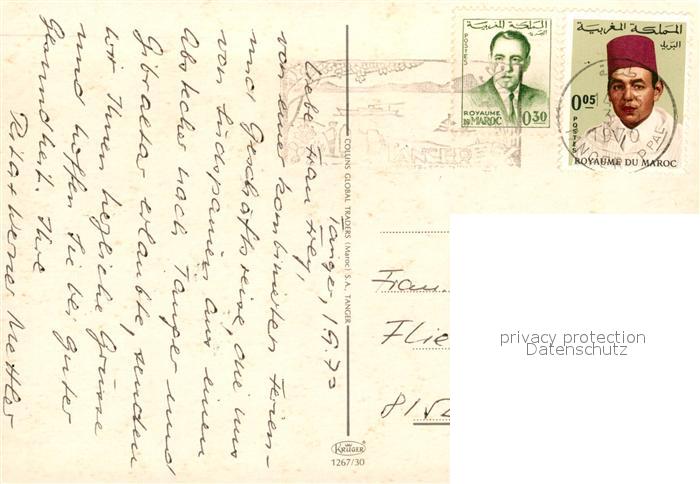 Tanger, 1.9.70
Liebe Frau Frey,
von einer kombinierten Ferien-
und Geschäftsreise, die uns
von Südspanien aus einen
Abstecher nach Tanger und
Gibraltar erlaubte, senden
wir Ihnen herzliche Grüsse
und hoffen Sie bei guter
Gesundheit. Ihre
Rita + Werner Mettler
COLLINS GLOBAL TRADERS (Maroc) S.A., TANGER
KRÜGER
1267/30
المملكة المغربية
البريد
POSTES
ROYAUME
DU MAROC
0.30
المملكة المغربية
البريد
0.05
POSTES
ROYAUME DU MAROC
1970
TANGER
Frau
Flie
815
privacy protection
Datenschutz